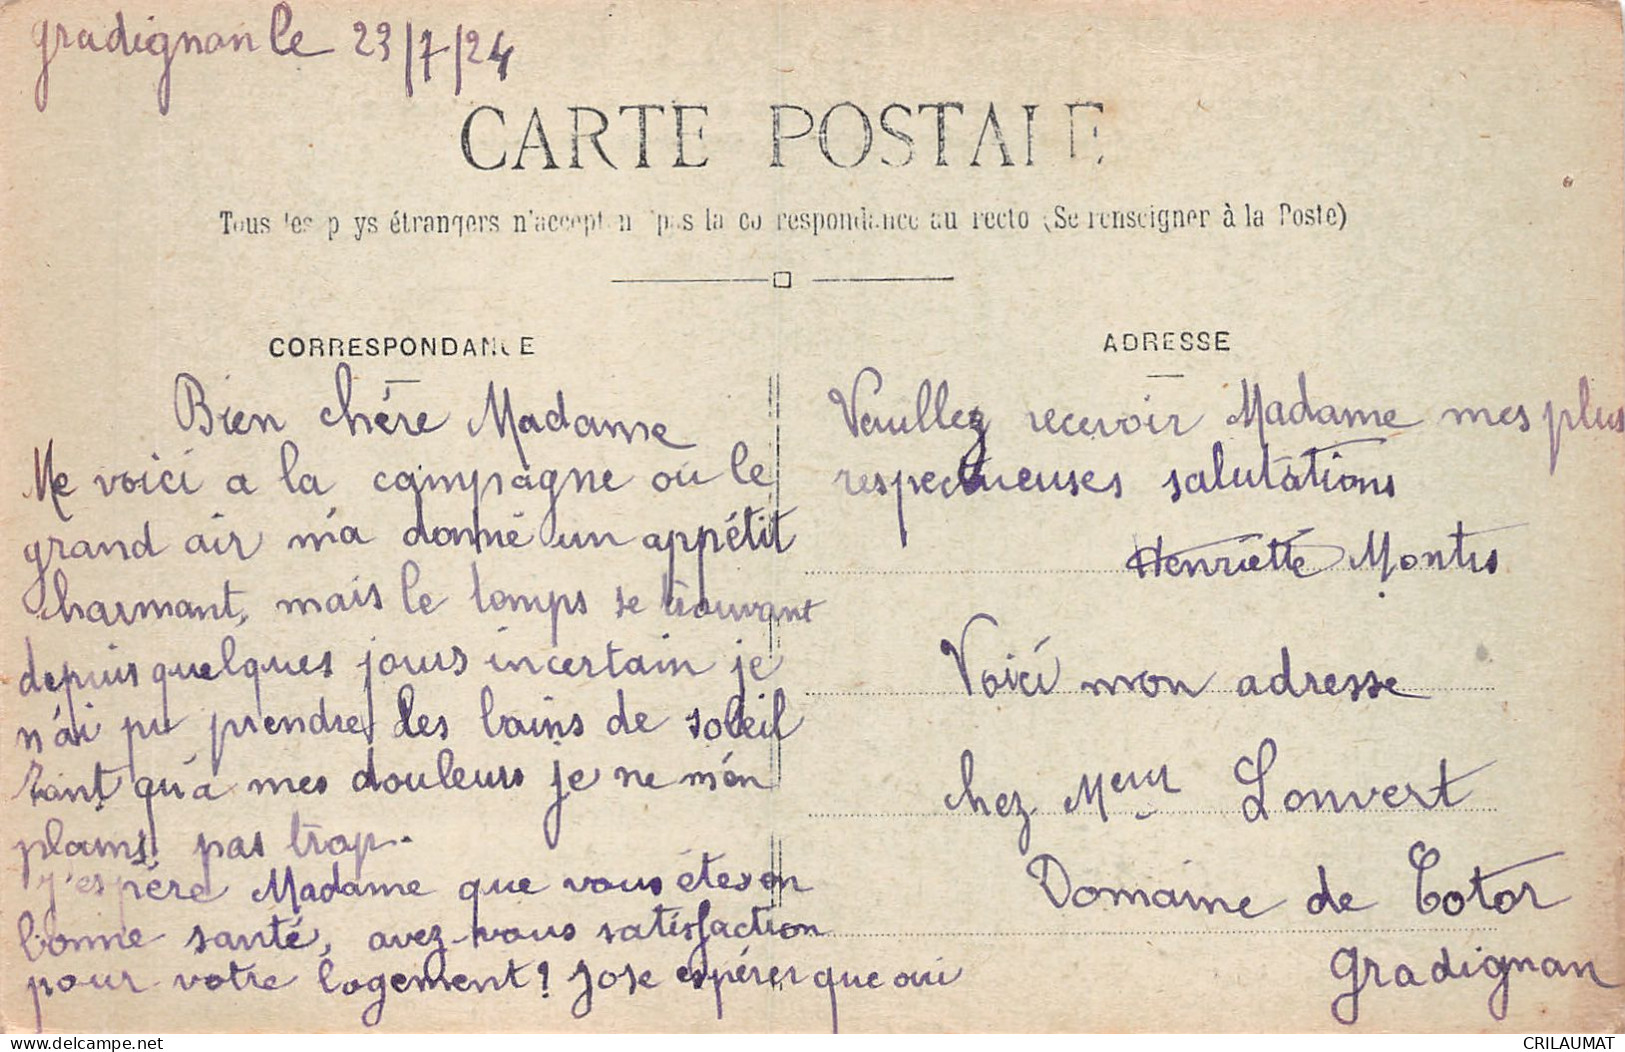 Gradignan le 23/7/24
CARTE POSTALE
Tous les pays étrangers n'acceptent pas la correspondance au recto (Se renseigner à la Poste)
CORRESPONDANCE
Bien chère Madame
Me voici a la campagne où le
grand air m'a donné un appétit
charmant, mais le temps se trouvant
depuis quelques jours incertain je
n'ai pu prendre les bains de soleil
tant qu'a mes douleurs je ne m'en
plains pas trop.
J'espère Madame que vous êtes en
bonne santé, avez-vous satisfaction
pour votre logement? J'ose espérer que oui
ADRESSE
Veuillez recevoir Madame mes plus
respectueuses salutations
Henriette
Voici mon adresse
chez Meur Louvert
Domaine de Cotor
Gradignan
CRILAUMAT
delcampe.net